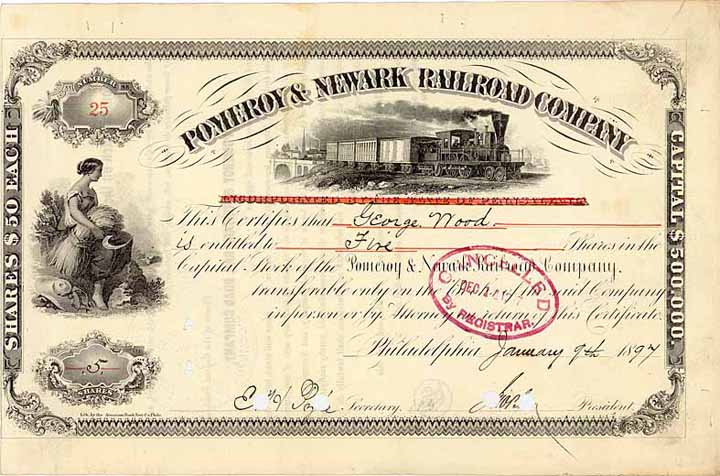 NUMBER
25
POMEROY & NEWARK RAILROAD COMPANY
INCORPORATED BY THE STATE OF PENNSYLVANIA
This Certifies that George Wood
is entitled to Five Shares in the
Capital Stock of the Pomeroy & Newark Railroad Company.
transferable only on the of the said Company
in person or by Attorney on return of this Certificate.
Philadelphia January 9th 1897
Secretary. President.
CANCELLED
DEC
BY REGISTRAR.
SHARES $50 EACH
CAPITAL $500,000.
5
SHARES
Lith. by the American Bank Note Co. Phila.